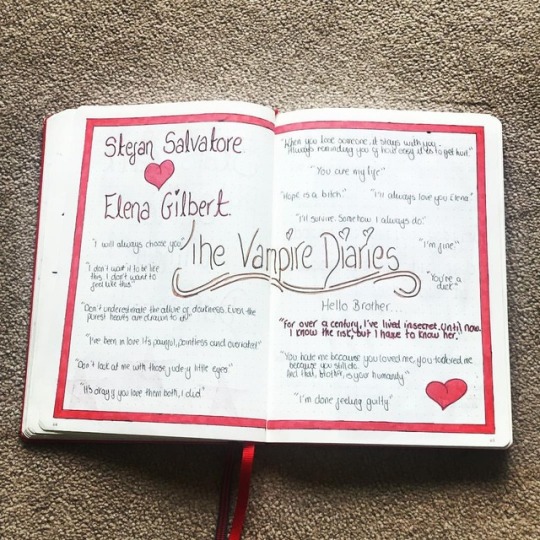 Stefan Salvatore
Elena Gilbert
"I will always choose you"
"I don't want it to be like
this. I don't want to
feel like this"
"Don't underestimate the allure of darkness. Even the
purest hearts are drawn to it"
"I've been in love. It's painful, pointless and overrated"
"Don't look at me with those judgy little eyes"
"It's okay if you love them both, I did"
The Vampire Diaries
"When you lose someone, it stays with you -
Always reminding you of how easy it is to get hurt."
"You are my life"
"Hope is a bitch"
"I'll always love you Elena"
"I'll survive. Somehow I always do."
"I'm fine."
"You're a
dick"
Hello Brother...
"For over a century, I've lived in secret. Until now.
I know the risk, but I have to know her."
"You hate me because you loved me, you
because you still do.
And that, brother, is your humanity"
"I'm done feeling guilty"
44
45